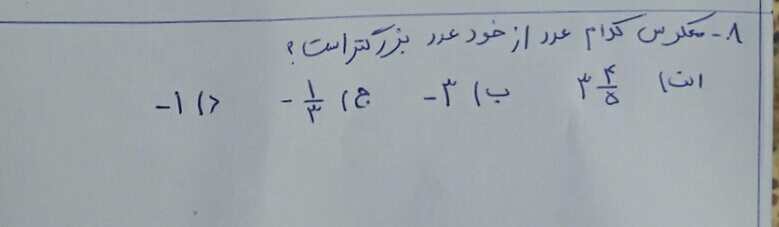 ۸- معکوس کدام عدد از خود عدد بزرگتر است؟
الف) ۳ ۴/۵ ب) -۳ ج) -۱/۳ د) -۱